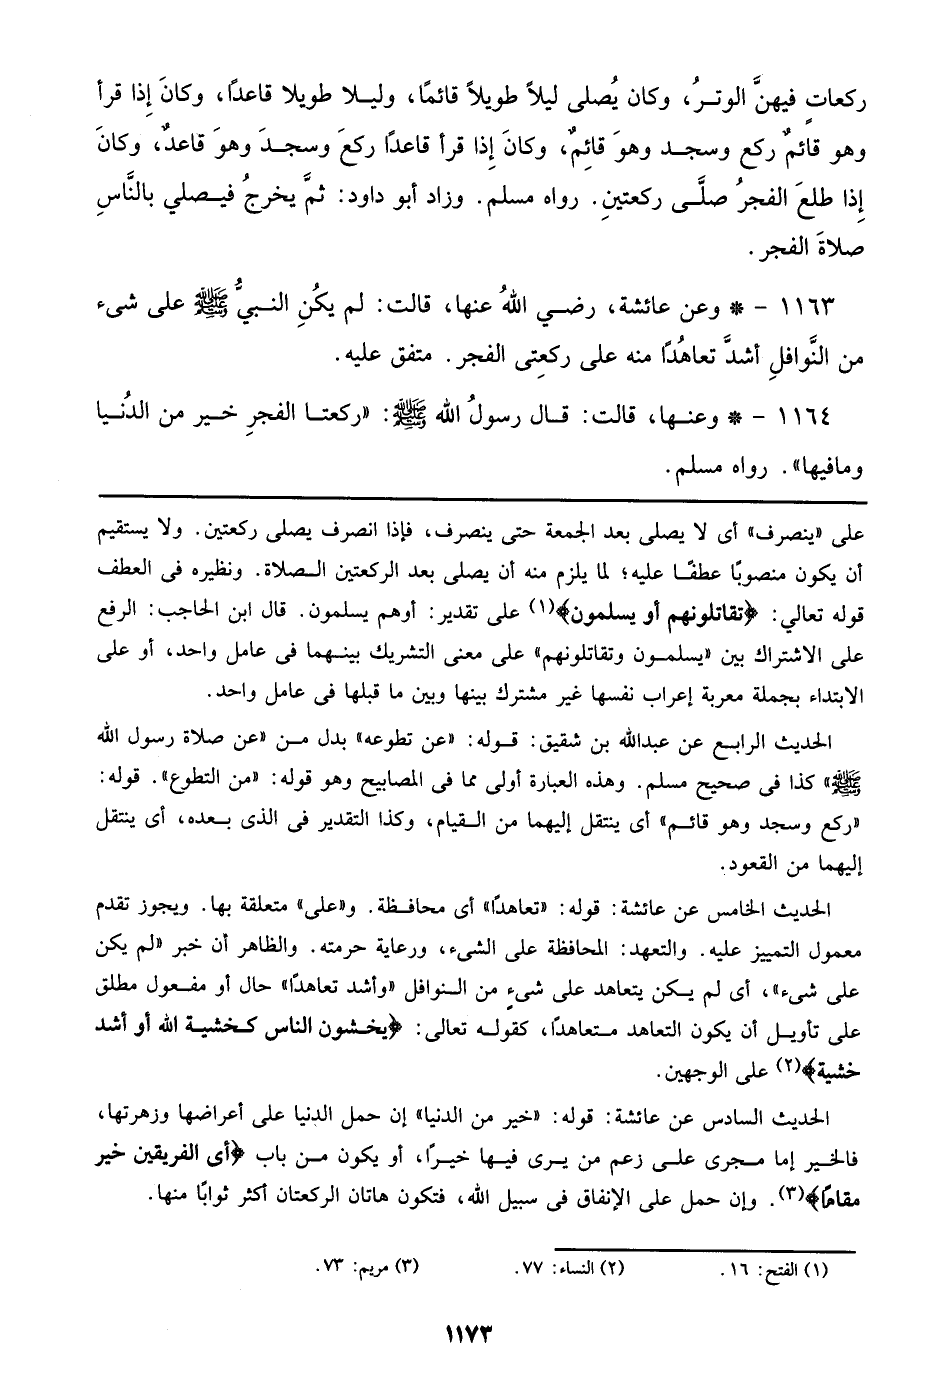 ركعاتٍ فيهنَّ الوترُ، وكان يُصلى ليلاً طويلاً قائمًا، وليلا طويلا قاعدًا، وكانَ إِذا قرأ
وهو قائمٌ ركع وسجد وهوَ قائِمٌ، وكانَ إِذا قرأ قاعدًا ركعَ وسجدَ وهوَ قاعدٌ، وكانَ
إِذا طلعَ الفجرُ صلَّى ركعتينِ. رواه مسلم. وزاد أبو داود: ثمَّ يخرجُ فيصلي بالنَّاسِ
صلاةَ الفجر.
١١٦٣ - * وعن عائشة، رضي اللهُ عنها، قالت: لم يكُنِ النبيُّ ﷺ على شىء
من النَّوافلِ أشدَّ تعاهُدًا منه على ركعتِى الفجر. متفق عليه.
١١٦٤ - * وعنها، قالت: قال رسولُ الله ﷺ: «ركعتا الفجرِ خير من الدُنيا
ومافيها». رواه مسلم.
على «ينصرف» أى لا يصلى بعد الجمعة حتى ينصرف، فإذا انصرف يصلى ركعتين. ولا يستقيم
أن يكون منصوبًا عطفًا عليه؛ لما يلزم منه أن يصلى بعد الركعتين الصلاة. ونظيره فى العطف
قوله تعالي: ﴿تقاتلونهم أو يسلمون﴾(١) على تقدير: أوهم يسلمون. قال ابن الحاجب: الرفع
على الاشتراك بين «يسلمون وتقاتلونهم» على معنى التشريك بينهما فى عامل واحد، أو على
الابتداء بجملة معربة إعراب نفسها غير مشترك بينها وبين ما قبلها فى عامل واحد.
الحديث الرابع عن عبدالله بن شقيق: قوله: «عن تطوعه» بدل من «عن صلاة رسول الله
ﷺ» كذا فى صحيح مسلم. وهذه العبارة أولى مما فى المصابيح وهو قوله: «من التطوع». قوله:
«ركع وسجد وهو قائم» أى ينتقل إليهما من القيام، وكذا التقدير فى الذى بعده، أى ينتقل
إليهما من القعود.
الحديث الخامس عن عائشة: قوله: «تعاهدًا» أى محافظة. و«على» متعلقة بها. ويجوز تقدم
معمول التمييز عليه. والتعهد: المحافظة على الشىء، ورعاية حرمته. والظاهر أن خبر «لم يكن
على شىء»، أى لم يكن يتعاهد على شىءٍ من النوافل «وأشد تعاهدًا» حال أو مفعول مطلق
على تأويل أن يكون التعاهد متعاهدًا، كقوله تعالى: ﴿يخشون الناس كخشية الله أو أشد
خشية﴾(٢) على الوجهين.
الحديث السادس عن عائشة: قوله: «خير من الدنيا» إن حمل الدنيا على أعراضها وزهرتها،
فالخير إما مجرى على زعم من يرى فيها خيرًا، أو يكون من باب ﴿أى الفريقين خير
مقامًا﴾(٣). وإن حمل على الإنفاق فى سبيل الله، فتكون هاتان الركعتان أكثر ثوابًا منها.
(١) الفتح: ١٦. (٢) النساء: ٧٧. (٣) مريم: ٧٣.
١١٧٣